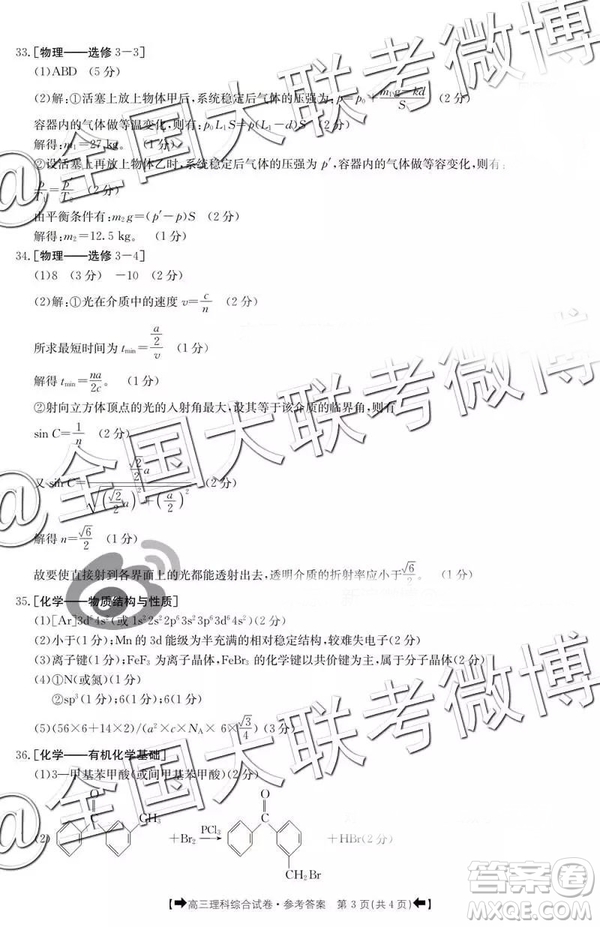 33.[物理——选修3-3]
(1)ABD (5分)
(2)解:①活塞上放上物体甲后,系统稳定后气体的压强为:p=p₀+m₁g-kd/S (2分)
容器内的气体做等温变化,则有:p₀L₁S=p(L₁-d)S (2分)
解得:m₁=27 kg。 (1分)
②设活塞上再放上物体乙时,系统稳定后气体的压强为p′,容器内的气体做等容变化,则有:
(2分)
由平衡条件有:m₂g=(p′-p)S (1分)
解得:m₂=12.5 kg。 (1分)
34.[物理——选修3-4]
(1)8 (3分) -10 (2分)
(2)解:①光在介质中的速度v=c/n (2分)
所求最短时间为tmin=(a/2)/v (1分)
解得tmin=na/2c。 (1分)
②射向立方体顶点的光的入射角最大,设其等于该介质的临界角,则有
sin C=1/n (2分)
又sin C=(√2/2)a/√((√2/2 a)²+(a/2)²) (2分)
解得n=√6/2 (1分)
故要使直接射到各界面上的光都能透射出去,透明介质的折射率应小于√6/2 (1分)
35.[化学——物质结构与性质]
(1)[Ar]3d⁶4s²(或1s²2s²2p⁶3s²3p⁶3d⁶4s²)(2分)
(2)小于(1分);Mn的3d能级为半充满的相对稳定结构,较难失去电子(2分)
(3)离子键(1分);FeF₃为离子晶体,FeBr₃的化学键以共价键为主,属于分子晶体(2分)
(4)①N(或氮)(1分)
②sp³(1分);6(1分);6(1分)
(5)(56×6+14×2)/(a²×c×N_A×6×√3/4)(3分)
36.[化学——有机化学基础]
(1)3—甲基苯甲酸(或间甲基苯甲酸)(2分)
(2) O CH₃ +Br₂ PCl₃→ O CH₂Br +HBr(2分)
➡高三理科综合试卷·参考答案 第3页(共4页)⬅
@全国大联考微博
@全国大联考微博
@全国大联考微博
答案圈